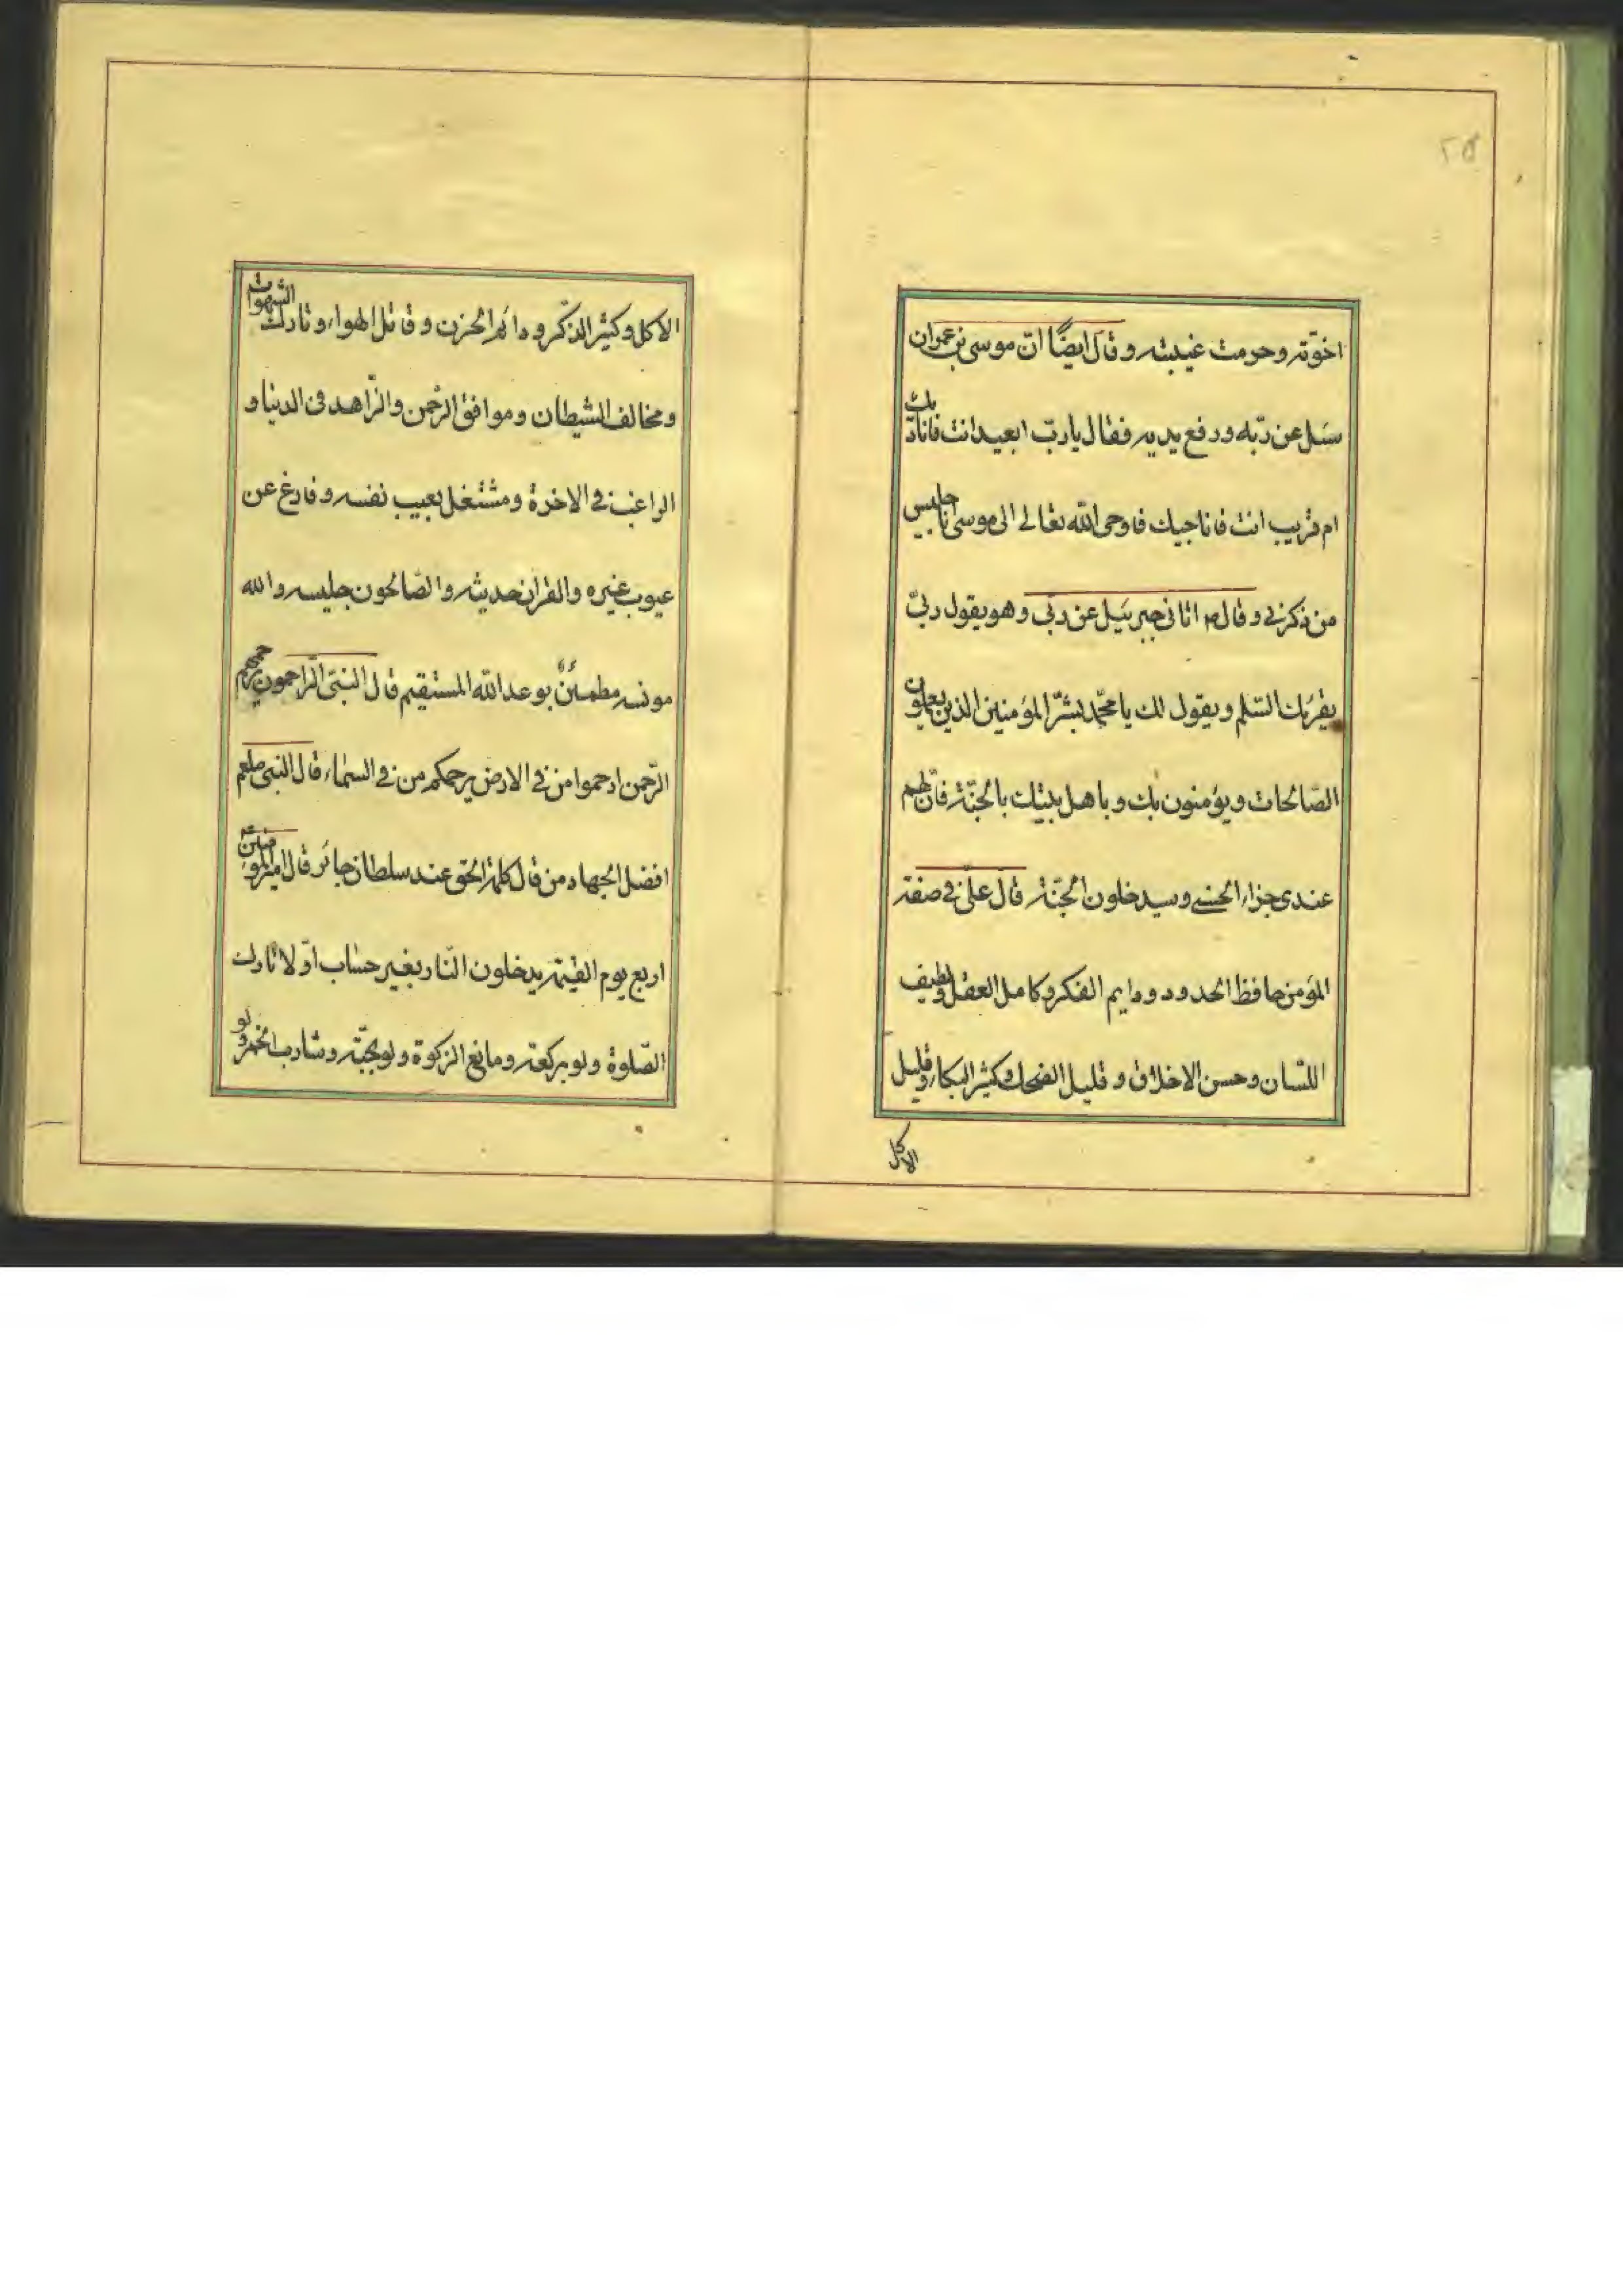 ٢٥
اخوّته وحرمت غيبته وقال ايضًا انّ موسى بن عمران
سئل عن ربّه ورفع يديه فقال يا ربّ ابعيد انت فاناديك
ام قريب انت فاناجيك فاوحى اللّه تعالى الى موسى انا جليس
من ذكرنى وقال ص اتانى جبرئيل عن ربّى وهو يقول ربّى
يقرئك السّلم ويقول لك يا محمّد بشّر المؤمنين الذين يعملون
الصّالحات ويؤمنون بك وباهل بيتك بالجنّة فانّ لهم
عندى جزاء الحسنى وسيدخلون الجنّة قال علىّ فى صفة
المؤمن حافظ الحدود ودايم الفكر وكامل العقل ولطيف
اللسّان وحسن الاخلاق وقليل الضحك وكثير البكاء وقليل
الاكل
الاكل وكثير الذكّر ودائم الحزن وقاتل الهواء وتارك الشهوات
ومخالف الشيطان وموافق الرحّمن والزّاهد فى الدنيا و
الراغب فى الاخرة ومشتغل بعيب نفسه وفارغ عن
عيوب غيره والقران حديثه والصّالحون جليسه والله
مونسه مطمئنٌّ بوعد اللّه المستقيم قال النبىّ الرّاحمون يرحمهم
الرّحمن ارحموا من فى الارض يرحمكم من فى السماء قال النبى صلعم
افضل الجهاد من قال كلمة الحق عند سلطان جائر قال امير المؤمنين
اربع يوم القيمة يدخلون النّار بغير حساب اوّلا تارك
الصّلوة ولو بركعة ومانع الزكوة ولو بحبّة وشارب الخمر ولو